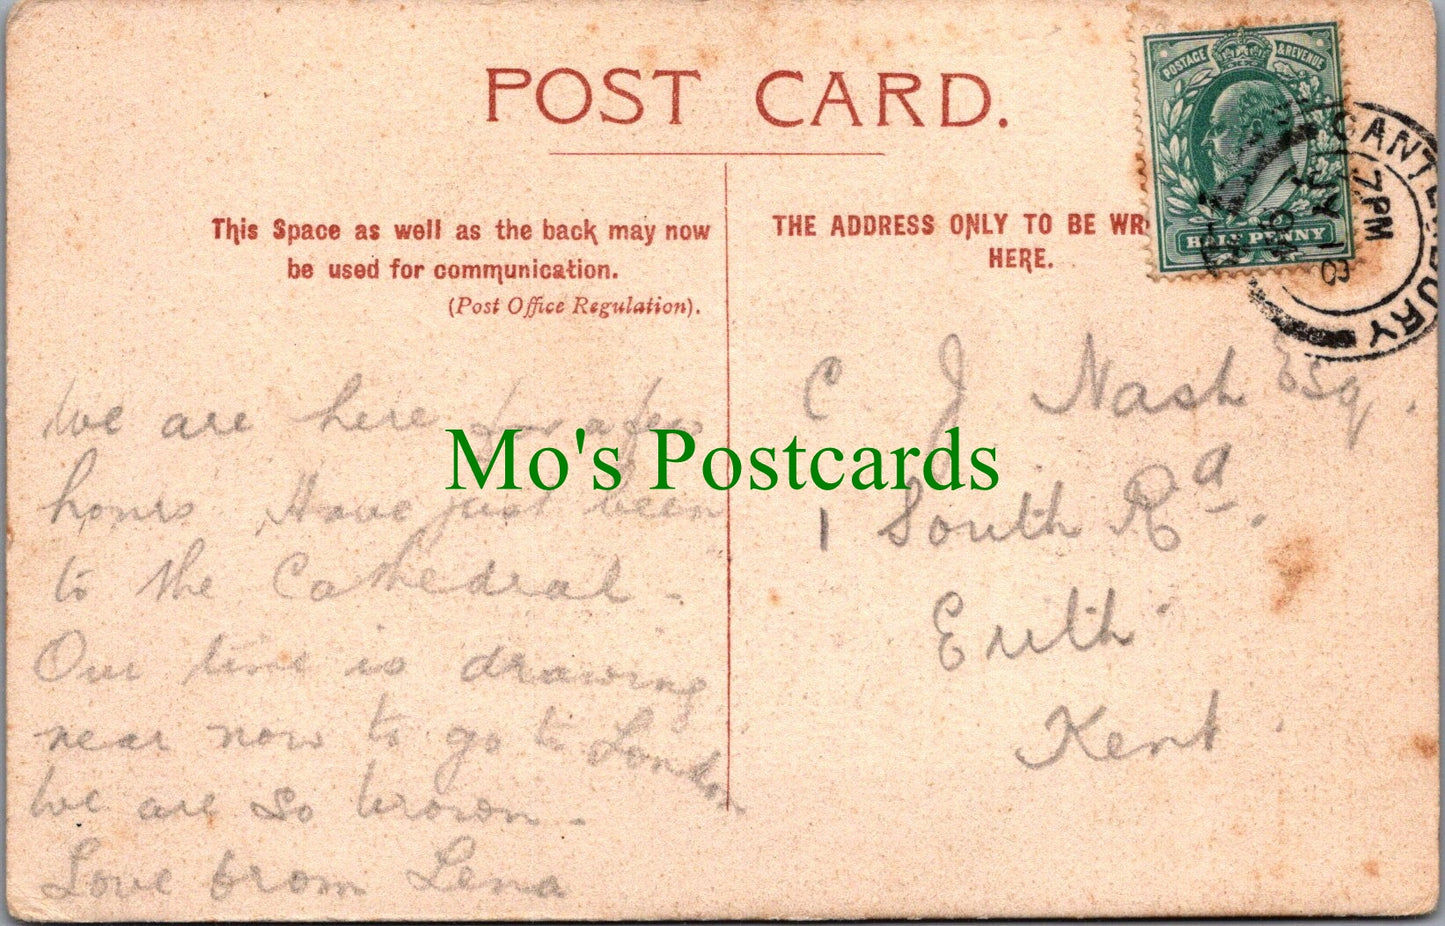 POST CARD.
This Space as well as the back may now
be used for communication.
(Post Office Regulation).
THE ADDRESS ONLY TO BE WR
HERE.
POSTAGE & REVENUE
HALF PENNY
CANTERBURY
7 PM
We are here for a few
hours. Have just been
to the Cathedral -
Our time is drawing
near now to go to London
We are so brown -
Love from Lena
C J Nash Esq.
1 South Rd.
Erith
Kent.
Mo's Postcards